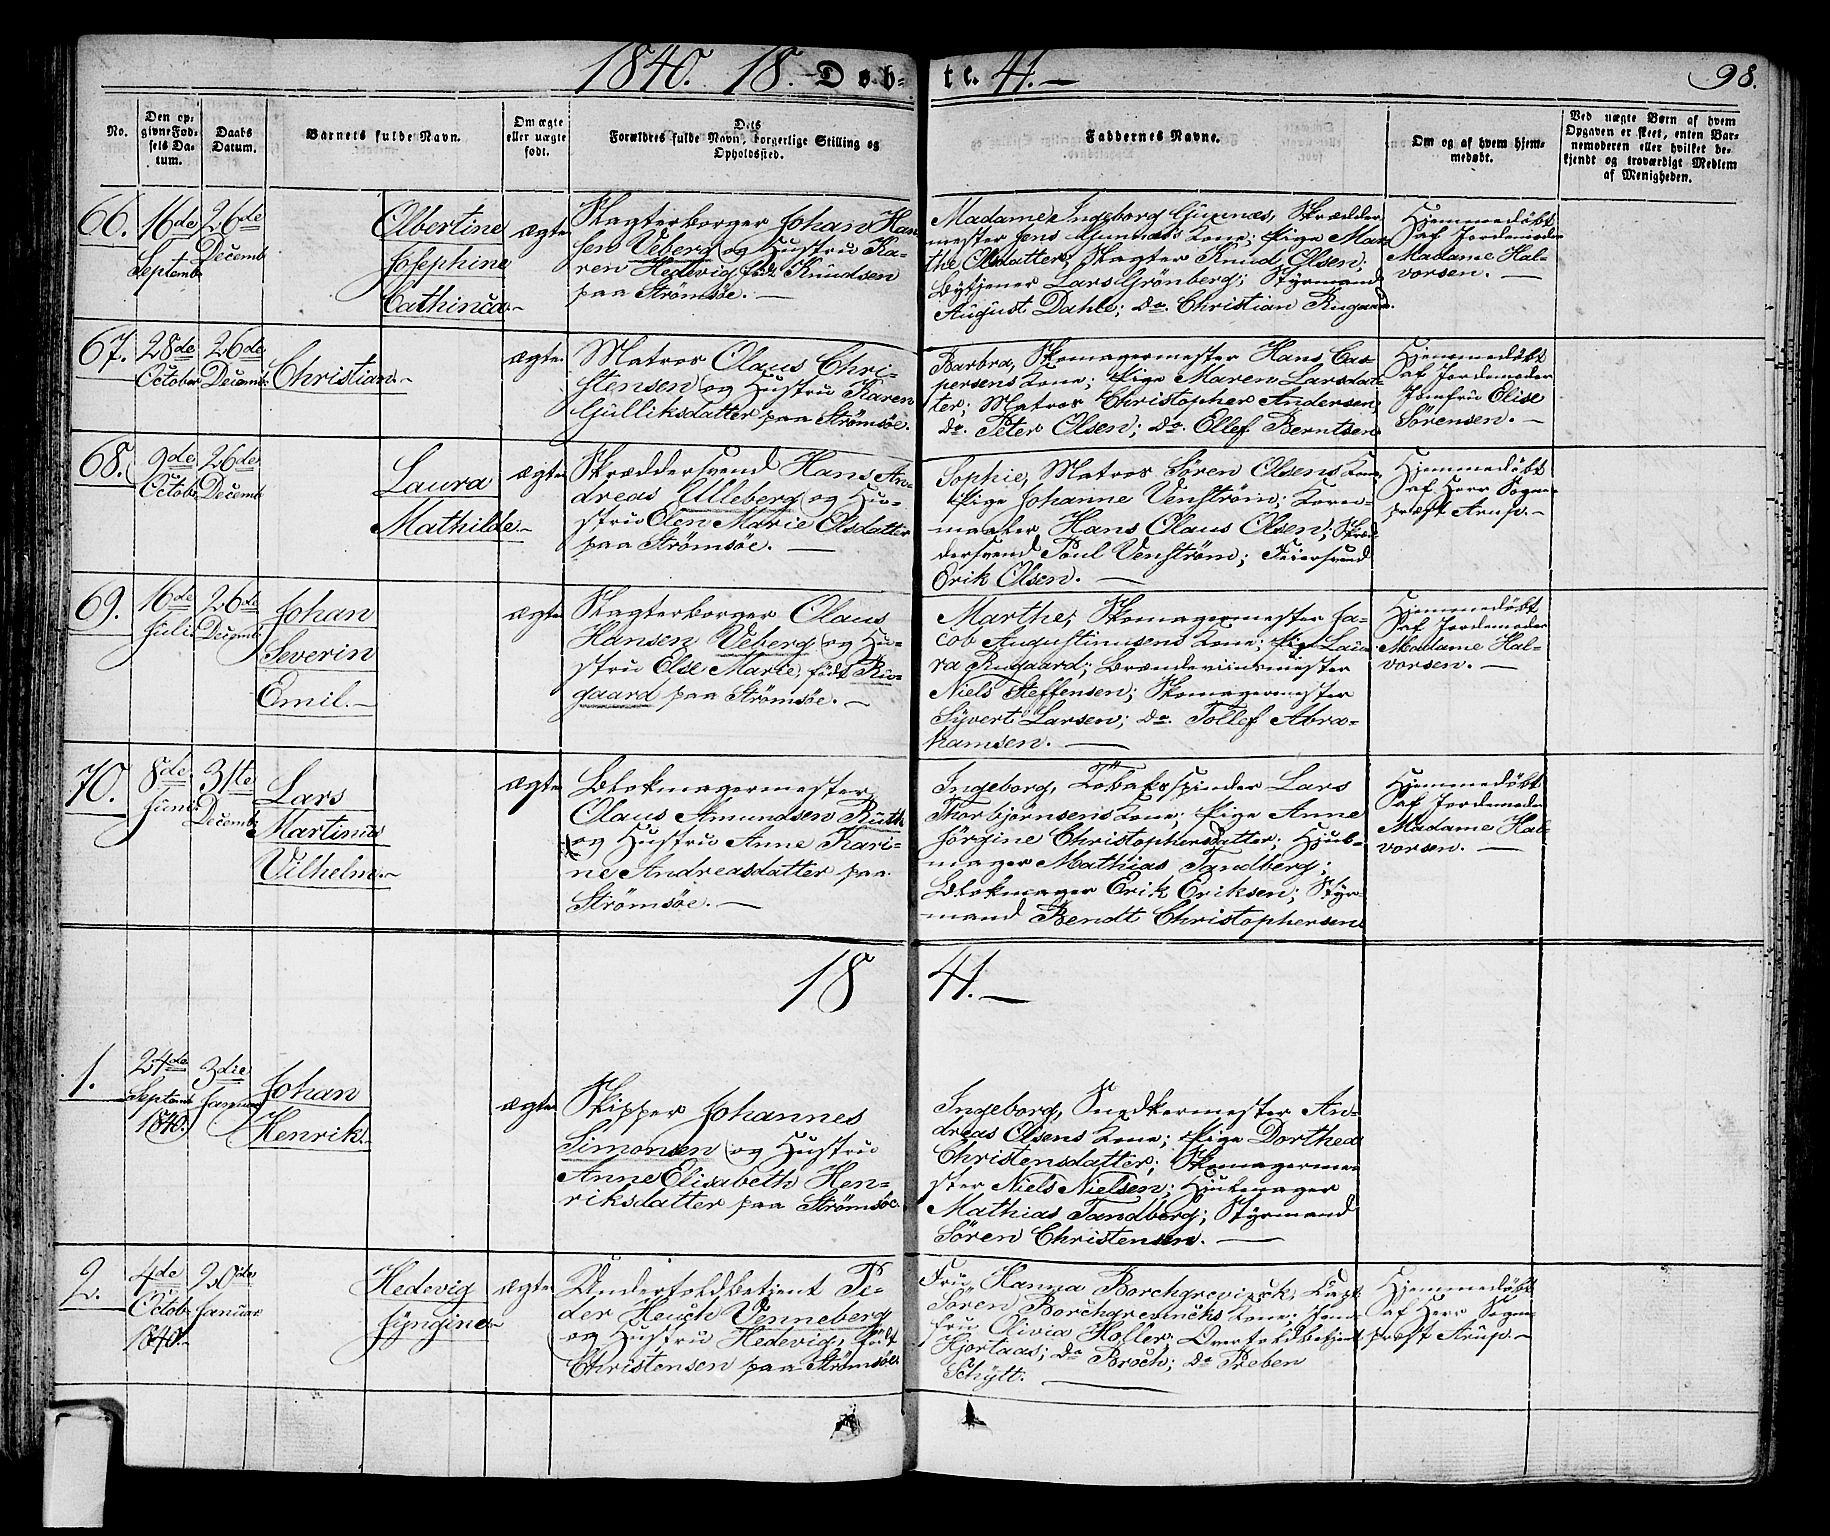 1840. 18. Døb-
te. 41.-
98.
No.
Den op-
givne Fød-
sels Da-
tum.
Daabs
Datum.
Barnets fulde Navn.
Om ægte
eller uægte
født.
Dets
Forældres fulde Navn, borgerlige Stilling og
Opholdssted.
Faddernes Navne.
Om og af hvem hjem-
medøbt.
Ved uægte Børn af hvem
Opgaven er skeet, enten Bar-
nemoderen eller hvilket be-
kjendt og troværdigt Medlem
af Menigheden.
66.
16de
Septemb
26de
Decemb
Albertine
Josephine
Cathinca.-
ægte
Slagterborger Johan Han-
sen Veberg og Hustru Ka-
ren Hedevig fød. Knudsen
paa Strömsöe. -
Madame Ingeborg Gunnæs, Skrædder-
mester Jens Gunnæs Kone; Pige Mar-
the Olsdatter; Slagter Knud Olsen;
Bytjener Lars Grönberg; Styrmand
August Dahle; Do. Christian Rugaard.
Hjemmedöbt
af Jordemoder
Madame Hal-
vorsen. -
67.
28de
October
26de
Decemb.
Christian.-
ægte
Matros Claus Chri-
stensen og Hustru Karen
Gulliksdatter paa Strömsöe.
Barbra, Skomagermester Hans Cas-
persens Kone; Pige Maren Larsdat-
ter; Matros Christopher Andersen;
do. Peter Olsen; do. Ollef Berntsen
Hjemmedöbt
af Jordemoder
Jomfru Elise
Sörensen. -
68.
9de
Octobr
26de
Decemb
Laura
Mathilde.-
ægte
Skræddersvend Hans An-
dreas Ulleberg og Hu-
stru Elen Marie Olsdatter
paa Strömsöe. -
Sophie, Matros Sören Olsens Kone
Pige Johanne Venström; Koren-
maaler Hans Claus Olsen; Skræd-
dersvend Poul Venström; Feiersvend
Erik Olsen. -
Hjemmedöbt
af Herr Sogne-
præst Arup.-
69.
16de
Juli
26de
Decemb.
Johan
Severin
Emil.-
ægte
Slagterborger Claus
Hansen Veberg og Hu-
stru Else Marie, födt Ru-
gaard paa Strömsöe. -
Marthe, Skomagermester Ja-
cob Augustinusens Kone; Pige Lau-
ra Rugaard; Brændeviinsmester
Niels Steffensen; Skomagermester
Syvert Larsen; do. Tollef Abra-
hamsen. -
Hjemmedöbt
af Jordemoder
Madame Hal-
vorsen. -
70.
8de
Juni
31te
Decemb.
Lars
Martinus
Vilhelm.-
ægte
Blokmagermester
Claus Amundsen Ruth
og Hustru Anne Kari-
ne Andreasdatter paa
Strömsöe. -
Ingeborg, Tobaksspinder Lars
Thorbjornsens Kone; Pige Anne
Jörgine Christophersdatter; Hjul-
mager Mathias Tandberg;
Blokmager Erik Eriksen; Styr-
mand Bendt Christophersen
Hjemmedöbt
af Jordemoder
Madame Hal-
vorsen. -
18 41.-
1.
24de
Septemb
1840.
3die
Januar
Johan
Henrik.
ægte
Skipper Johannes
Simonsen og Hustru
Anne Elisabeth Hen-
riksdatter paa Strömsöe.
Ingeborg, Snedkermester An-
dreas Olsens Kone; Pige Dorthea
Christensdatter; Skomagerme-
ster Niels Nielsen; Hjulmager
Mathias Tandberg; Styrmand
Sören Christensen. -
2.
4de
Octob.
1840.
20de
Januar
Hedevig
Jyngine.-
ægte
Undertoldbetjent Pe-
der Heuch Venneberg
og Hustru Hedevig, födt
Christensen paa Strömsöe
Fru Hanna Borchgrevinck, Capt.
Sören Borchgrevincks Kone; Jom-
fru Olivia Holler, Overtoldbetjent
Hjorlaas; do Broch; do Preben
Schÿtt. -
Hjemmedöbt
af Herr Sogne
præst Arup.-